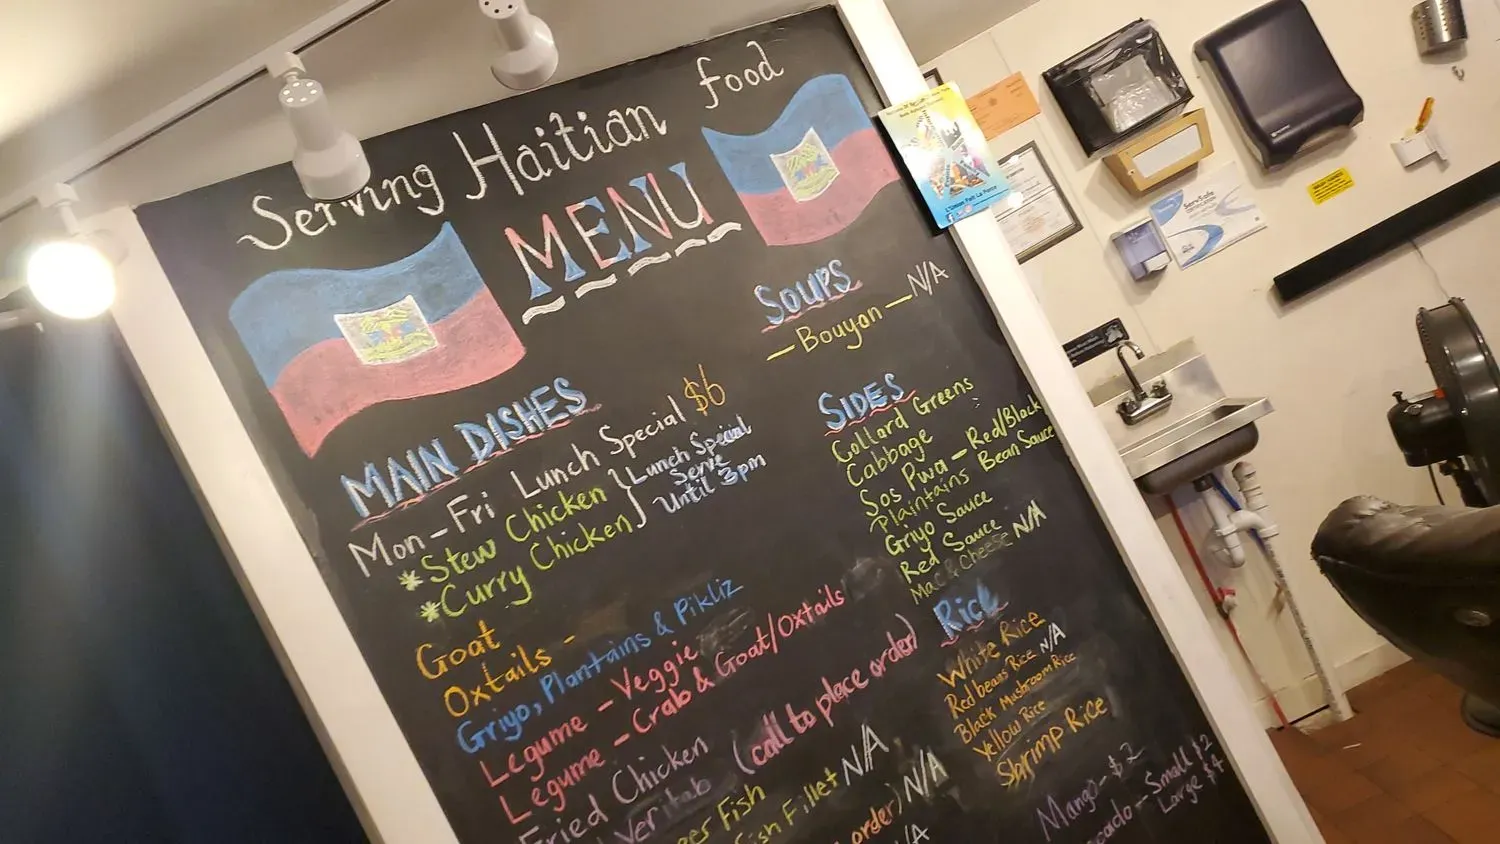 Serving Haitian food
MENU
MAIN DISHES
Mon-Fri Lunch Special $6
*Stew Chicken
*Curry Chicken
Lunch Special
Serve
Until 3pm
Goat
Oxtails -
Griyo, Plantains & Pikliz
Legume - Veggie
Legume - Crab & Goat/Oxtails
Fried Chicken
(call to place order)
Fish
Fish Fillet N/A
order) N/A
N/A
SOUPS
- Bouyon - N/A
SIDES
Collard Greens
Cabbage
Sos Pwa - Red/Black
Bean Sauce
Plaintains
Griyo Sauce
Red Sauce
Mac & Cheese N/A
Rice
White Rice
Red beans Rice N/A
Black Mushroom Rice
Yellow Rice
Shrimp Rice
Mango - $2
- Small $2
Large $4
L'Union Fait La Force
ServSafe